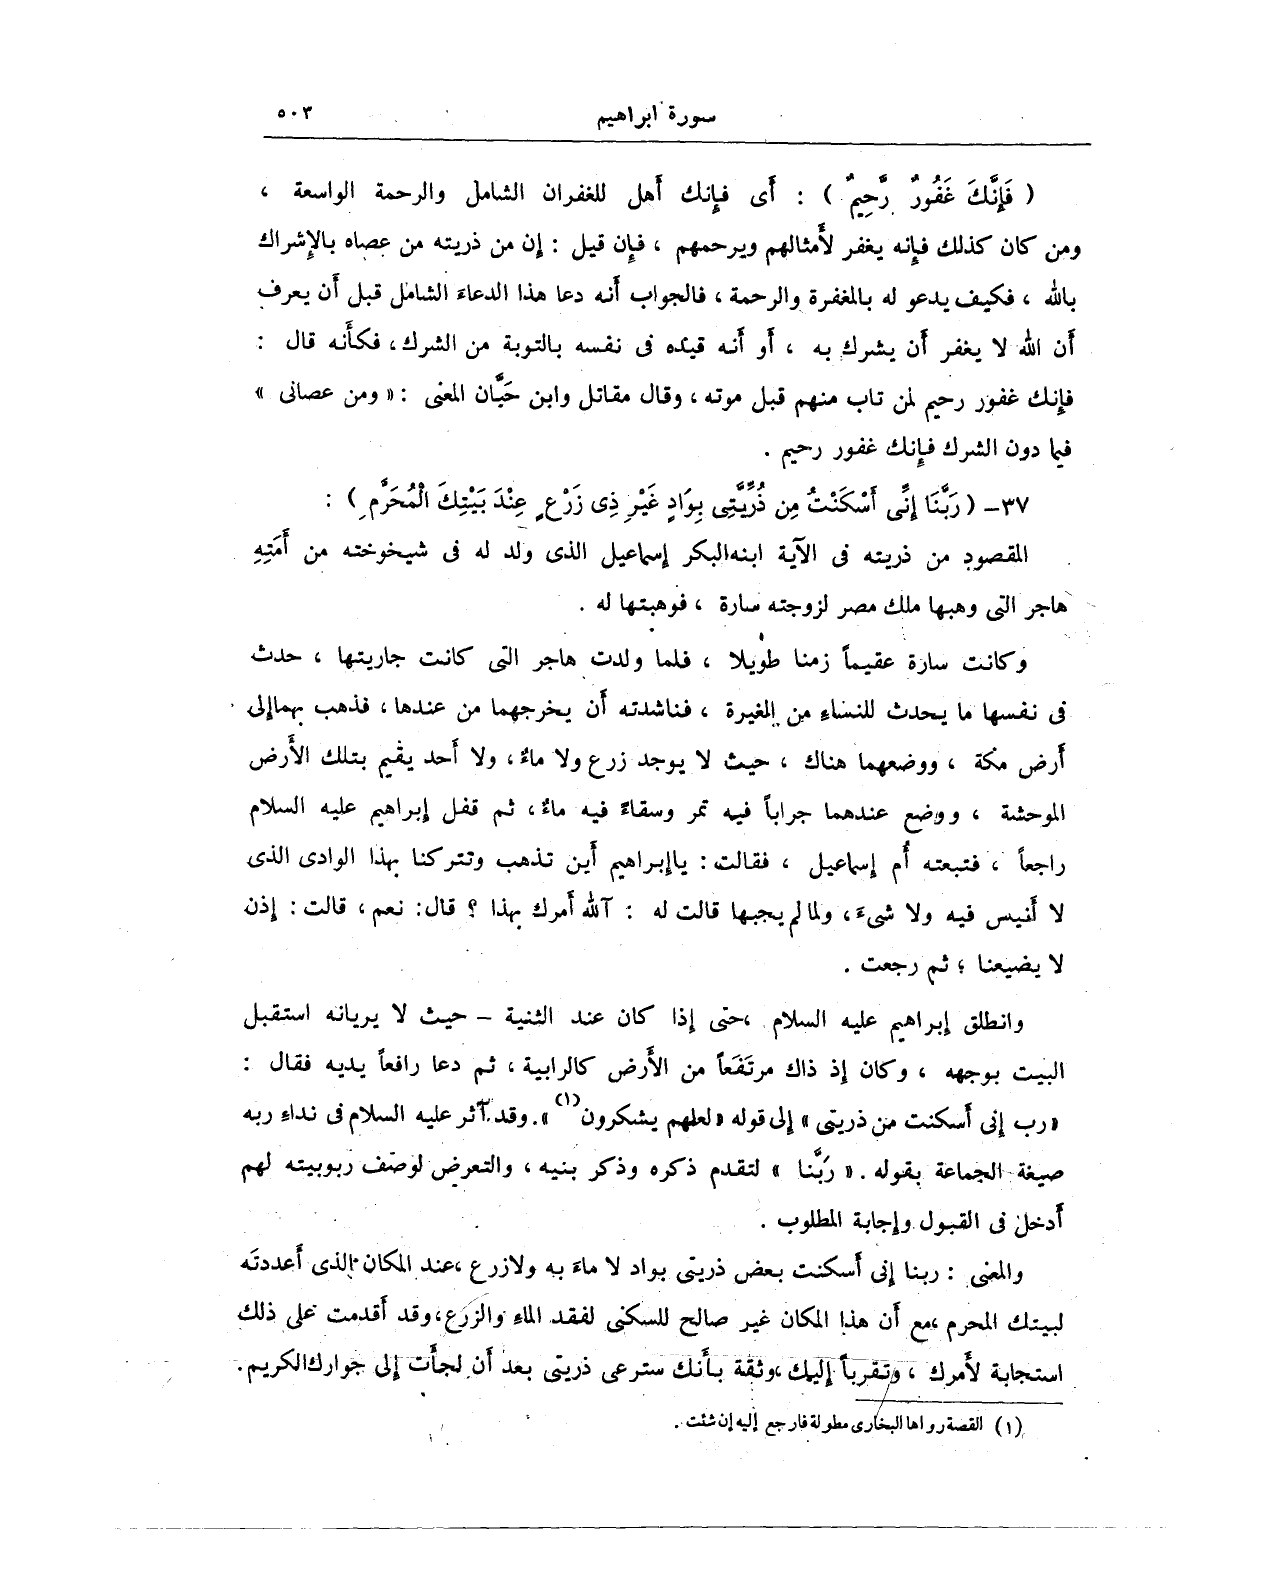 سورة ابراهيم ٥٠٣
( فَإِنَّكَ غَفُورٌ رَّحِيمٌ ) : أَى فإنك أَهل للغفران الشامل والرحمة الواسعة ،
ومن كان كذلك فإنه يغفر لأَمثالهم ويرحمهم ، فإن قيل : إن من ذريته من عصاه بالإشراك
بالله ، فكيف يدعو له بالمغفرة والرحمة ، فالجواب أَنه دعا هذا الدعاءَ الشامل قبل أَن يعرف
أَن الله لا يغفر أَن يشرك به ، أَو أَنه قيده فى نفسه بالتوبة من الشرك، فكأَنه قال :
فإنك غفور رحيم لمن تاب منهم قبل موته ، وقال مقاتل وابن حَيَّان المعنى : « ومن عصانى »
فيما دون الشرك فإنك غفور رحيم .
٣٧- ( رَبَّنَا إِنِّى أَسْكَنْتُ مِن ذُرِّيَّتِى بِوَادٍ غَيْرِ ذِى زَرْعٍ عِنْدَ بَيْتِكَ الْمُحَرَّمِ ) :
المقصود من ذريته فى الآية ابنه البكر إسماعيل الذى ولد له فى شيخوخته من أَمَتِهِ
هاجر التى وهبها ملك مصر لزوجته سارة ، فوهبتها له .
وكانت سارة عقيماً زمنا طويلا ، فلما ولدت هاجر التى كانت جاريتها ، حدث
فى نفسها ما يحدث للنساءِ من الغيرة ، فناشدته أَن يخرجهما من عندها ، فذهب بهما إلى
أَرض مكة ، ووضعهما هناك ، حيث لا يوجد زرع ولا ماءٌ ، ولا أَحد يقيم بتلك الأَرض
الموحشة ، ووضع عندهما جراباً فيه تمر وسقاءً فيه ماءٌ ، ثم قفل إبراهيم عليه السلام
راجعاً ، فتبعته أُم إسماعيل ، فقالت : يا إبراهيم أَين تذهب وتتركنا بهذا الوادى الذى
لا أَنيس فيه ولا شىءَ ، ولما لم يجبها قالت له : آلله أَمرك بهذا ؟ قال: نعم ، قالت : إذن
لا يضيعنا ؛ ثم رجعت .
وانطلق إبراهيم عليه السلام ،حتى إذا كان عند الثنية – حيث لا يريانه استقبل
البيت بوجهه ، وكان إذ ذاك مرتَفَعاً من الأَرض كالرابية ، ثم دعا رافعاً يديه فقال :
«رب إنى أَسكنت من ذريتى » إلى قوله «لعلهم يشكرون(١) ». وقد آثر عليه السلام فى نداءِ ربه
صيغة الجماعة بقوله . « رَبَّنا » لتقدم ذكره وذكر بنيه ، والتعرض لوصف ربوبيته لهم
أَدخل فى القبول وإجابة المطلوب .
والمعنى : ربنا إنى أَسكنت بعض ذريتى بواد لا ماءَ به ولا زرع ،عند المكان الذى أَعددتَه
لبيتك المحرم ،مع أَن هذا المكان غير صالح للسكنى لفقد الماءِ والزرع،وقد أَقدمت على ذلك
استجابة لأَمرك ، وتقرباً إليك ،وثقة بأَنك سترعى ذريتى بعد أَن لجأَت إلى جوارك الكريم .
(١) القصة رواها البخارى مطولة فارجع إليه إن شئت .